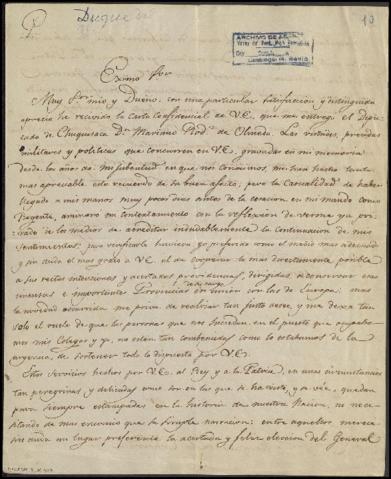 Duque
10
ARCHIVO DE
Exmo Sor
Muy Sor mio y Dueño: con una particular satisfaccion y distinguido
aprecio he recivido la Carta Confidencial de V.E. que me entregó el Dipu-
tado de Chuquisaca Dn. Mariano Rodz. de Olmedo. Las virtudes, prendas
militares y politicas que concurren en V.E., gravadas en mi memoria
desde los años de mi jubentud en que nos conocimos, me han hecho
mas apreciable este recuerdo de su buen afecto; pero la casualidad de haber
llegado a mis manos muy pocos dias antes de la cesacion en mi mando como
Regente, aminoro mi contentamiento con la reflexion de verme ya pri-
vado de los medios de acreditar indudablemente la continuacion de mis
sentimientos; para verificarlo huviera yo preferido como el medio mas adecuado
y sin duda el mas grato a V.E. el de cooperar lo mas directamente posible
a sus rectas intenciones y acertadas providencias, dirigidas a conservar esas
inmensas e importantes Provincias en union con las de Europa; mas
la novedad ocurrida me priva de realizar tan justo deseo, y me dexa tan
solo el de que las personas que nos succedan en el puesto que ocupaba-
mos mis Colegas y yo, no esten tan combencidas como lo estabamos de la
urgencia de sostener todo lo dispuesto por V.E.
Estos servicios hechos por V.E. al Rey y a la Patria, en unas circunstancias
tan peregrinas y delicadas como son en las que se ha visto, y se vée, quedan
para siempre estampados en la historia de nuestra Nacion, no nece-
sitando de mas encomio que la simple narracion: entre aquellos merece
sin duda un lugar preferente la acertada y feliz eleccion del General